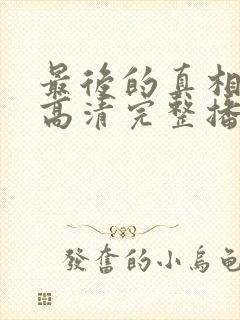 最後的真相
高清完整播
發奮的小烏龜